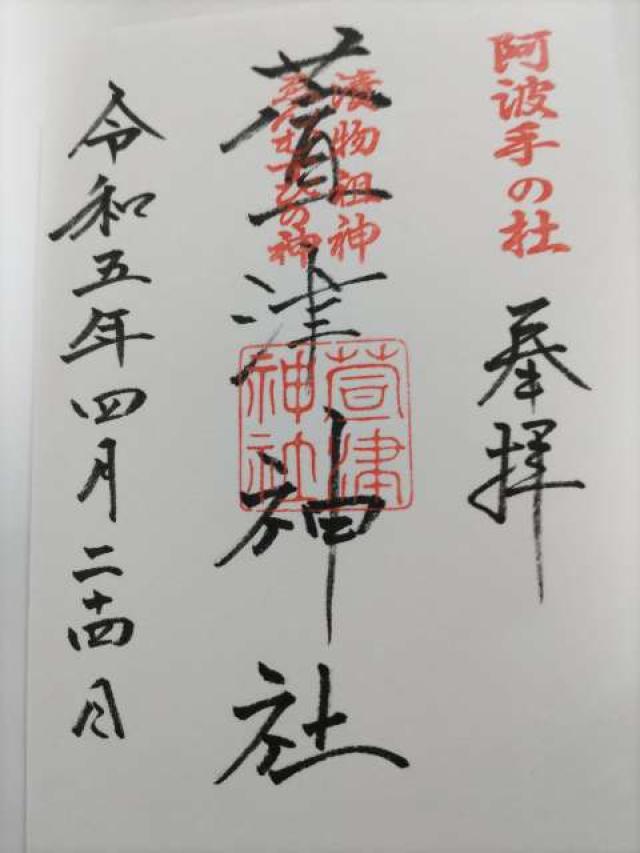 阿波手の杜
奉拝
漬物祖神
むすびの神
萱津神社
萱津
神社
令和五年四月二十四日